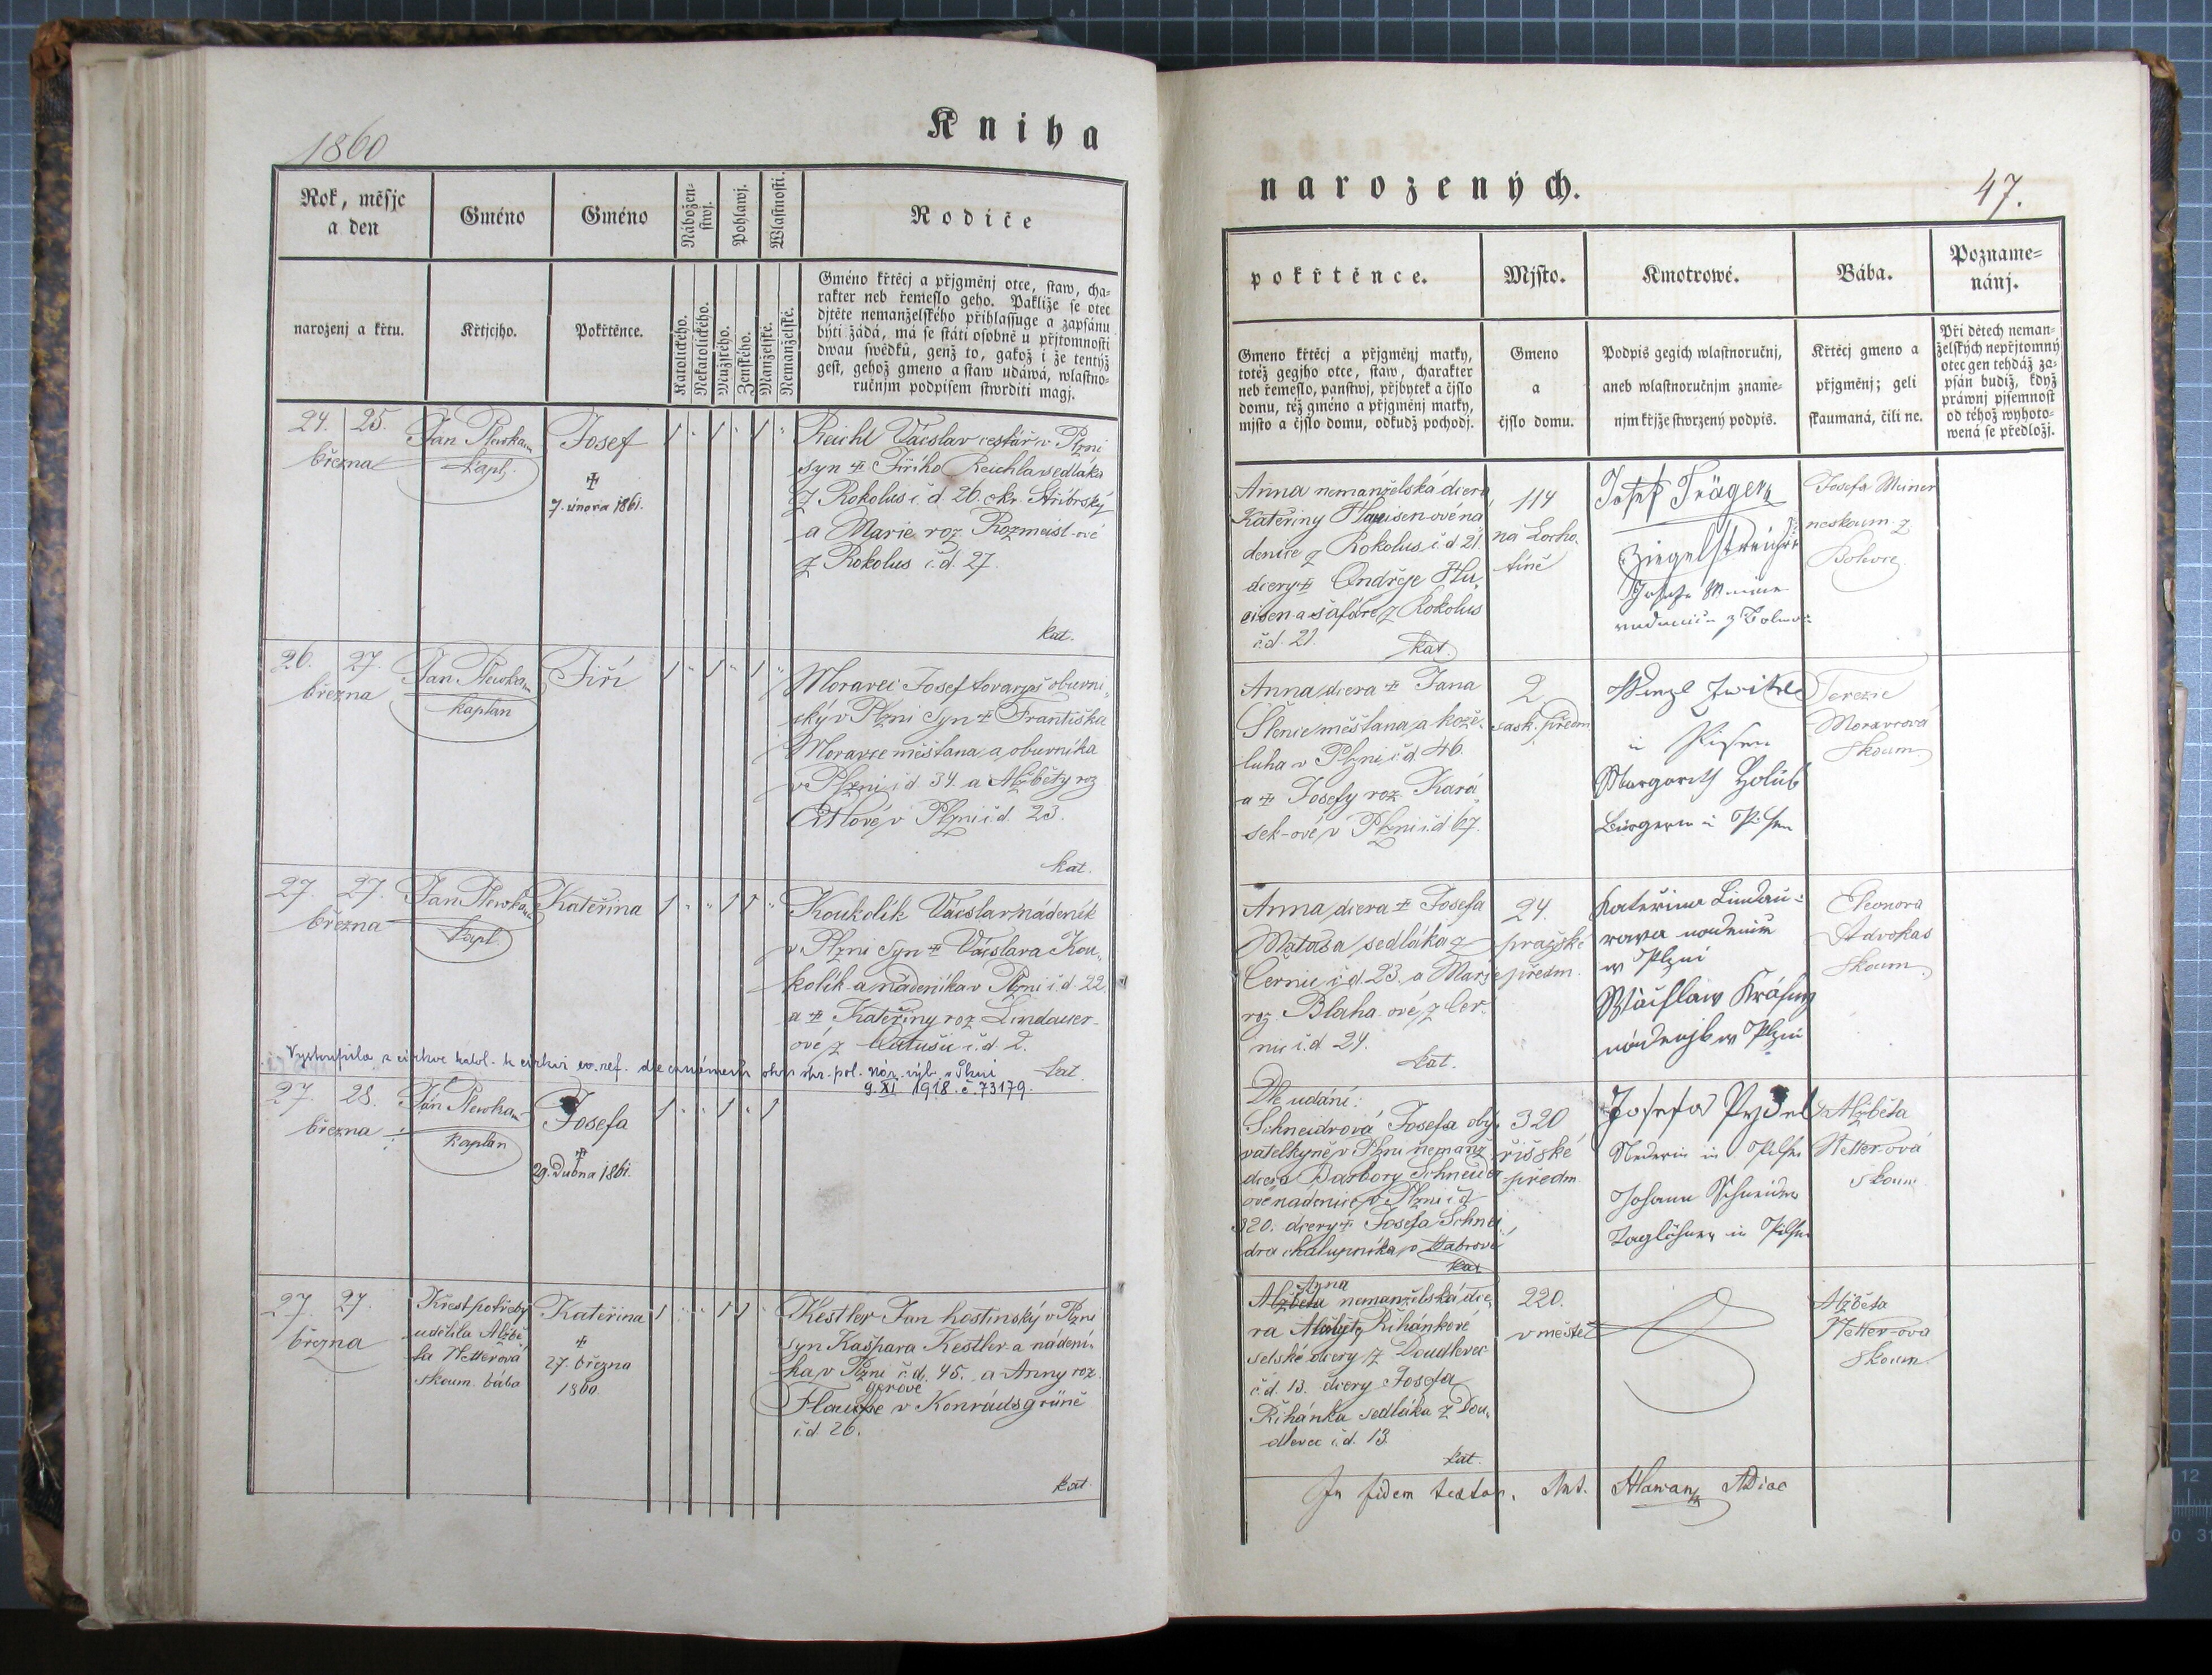 1860
Kniha
Rok, měsjc
a den
Gméno
Gméno
Nábožen-
stwj.
Pohlawj.
Wlastnosti.
Rodiče
narozenj a křtu.
Křtjcjho.
Pokřtěnce.
Katolického.
Nekatolického.
Mužského.
Ženského.
Manželské.
Nemanželské.
Gméno křtěcj a přjgměnj otce, staw, cha-
rakter neb řemeslo geho. Pakliže se otec
djtěte nemanželského přihlassuge a zapsánu
býti žádá, má se státi osobně u přjtomnosti
dwau swědků, genž to, gakož i že tentýž
gest, gehož gmeno a staw udáwá, wlastno-
ručnjm podpisem stwrditi magj.
24. 25.
března
Jan
kapl.
Josef
✝
7. února 1861.
Reichl Václav cestář v Plzni
syn ✝ Jiřího Reichla sedláka
z Rokolus č. d. 26. okr. Stříbrský
a Marie roz. Rozmeisl-ové
z Rokolus č. d. 27.
kat.
26. 27.
března
Jan
kaplan
Jiří
Moravec Josef tovaryš obuvni-
cký v Plzni syn ✝ Františka
Moravce měšťana a obuvníka
v Plzni č d 34. a Alžběty roz
v Plzni č. d. 23.
kat.
27. 27.
března
Jan
kapl
Kateřina
Koukolík Václav nádeník
v Plzni syn ✝ Václava Kou-
kolík-a nádeníka v Plzni č. d. 22.
a ✝ Kateřiny roz Lindauer-
ové z Litušic č. d. 2.
kat.
Vystoupila z církve katol. k církvi ev. ref. dle
9. XI. 1918. č. 73179.
27. 28.
března
Jan
kaplan
Josefa
✝
29. Dubna 1861.
27. 27.
března
Křest potřeby
udělila Alžbě-
ta Netterová
skoum. bába
Kateřina
✝
27. března
1860.
Kestler Jan hostinský v Plzni
syn Kašpara Kestler-a nádení-
ka v Plzni č. d. 45. a Anny roz.
gerové
v Konrádsgrüně
č. d. 26.
kat
narozených.
47.
pokřtěnce.
Mjsto.
Kmotrowé.
Bába.
Pozname-
nánj.
Gmeno křtěcj a přjgměnj matky,
totéž gegjho otce, staw, charakter
neb řemeslo, panstwj, přjbytek a čjslo
domu, též gméno a přjgměnj matky,
mjsto a čjslo domu, odkudž pochodj.
Gmeno
a
čjslo domu.
Podpis gegich wlastnoručnj,
aneb wlastnoručnjm zname-
njm křjže stwrzený podpis.
Křtěcj gmeno a
přjgměnj; geli
skaumaná, čili ne.
Při dětech neman-
želských nepřjtomný
otec gen tehdáž za-
psán budiž, když
práwnj pjsemnost
od téhož wyhoto-
wená se předložj.
Anna nemanželská dcera
Kateřiny ná-
denice z Rokolus č. d 21.
dcery ✝ Ondřeje Hu-
eisen-a šafáře z Rokolus
č. d. 21.
kat.
114
na Locho-
tíně
Josef Träger
Ziegelstreicher
Josefa Meiner
neskoum. z
Bolevce
Anna dcera ✝ Jana
měšťana a kože-
luha v Plzni č. d 46.
a ✝ Josefy roz. Kará-
sek-ové v Plzni č. d 67.
2
sask. předm.
Wenzl
in Pilsen
Margareth Holub
Bürgerin in Pilsen
Terezie
Moravcová
skoum
Anna dcera ✝ Josefa
Mataša sedláka z
Černic č. d. 23. a Marie
roz. Blaha-ové z Čer-
nic č. d. 24.
kat.
24.
pražské
předm.
Kateřina Lindau-
rova
w Plzni
Wáclaw
w Plzni
Eleonora
Advokas
skoum.
Dle udání:
Schneidrová Josefa oby-
vatelkyně v Plzni nemanž.
dcera Barbory Schneidr-
ové nádenice v Plzni č d
320. dcery ✝ Josefa Schnei-
dra chalupníka v Habrové
kat
320
říšské
předm.
Josefa
in Pilsen
Johann Schneider
Taglöhner in Pilsen
Alžběta
Netter-ová
skoum
Anna
Alžběta nemanželská dce-
ra Alžběty Řihánkové
selské dcery z Doudlevec
č. d. 13. dcery Josefa
Řihánka sedláka z Dou-
dlevec č. d. 13.
kat.
220.
v městě
Alžběta
Netter-ova
skoum
In fidem testor. Ant. Hlawan